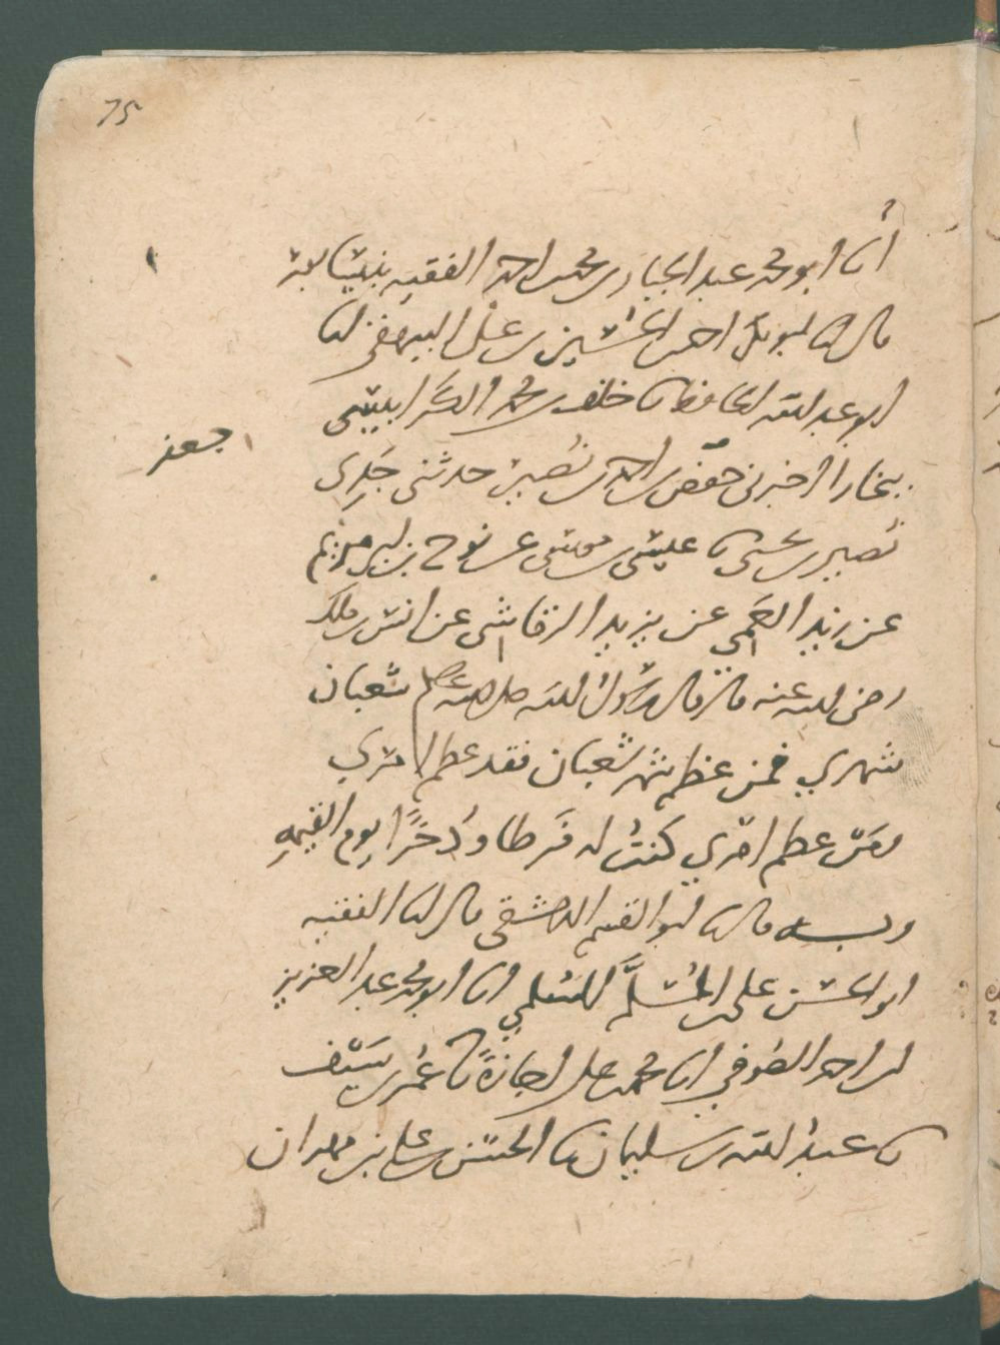 75
أنا ابو محمد عبد الجبار بن محمد بن احمد الفقيه بنيسابور
قال انا ابو بكر احمد بن الحسين بن علي البيهقي انا
ابو عبد الله الحافظ نا خلف بن محمد الكرابيسي
ببخارا اخبرني حفص بن احمد بن نصير حدثني جَدِي
جعفر
نصير بن يحيى نا عيسى بن موسى عن نوح بن ابي مريم
عن زيد العَمي عن يزيد الرقاشي عن انس بن ملك
رضي الله عنه قال قال رسول الله صلى الله عليه وسلم شعبان
شهري فمن عظم شهر شعبان فقد عظم امري
ومَن عظم امري كنتُ له فَرطا وذُخرًا يوم القيمةِ
وبه قال انا ابو القسم الدمشقي قال انا الفقيه
ابو الحسن علي بن المُسَلَّم السلمي انا ابو محمد عبد العزيز
بن احمد الصوفي انا محمد بن علي اجازةً نا عُمر بن سَيْف
نا عبد الله بن سليمان نا الحسن بن علي بن مهران